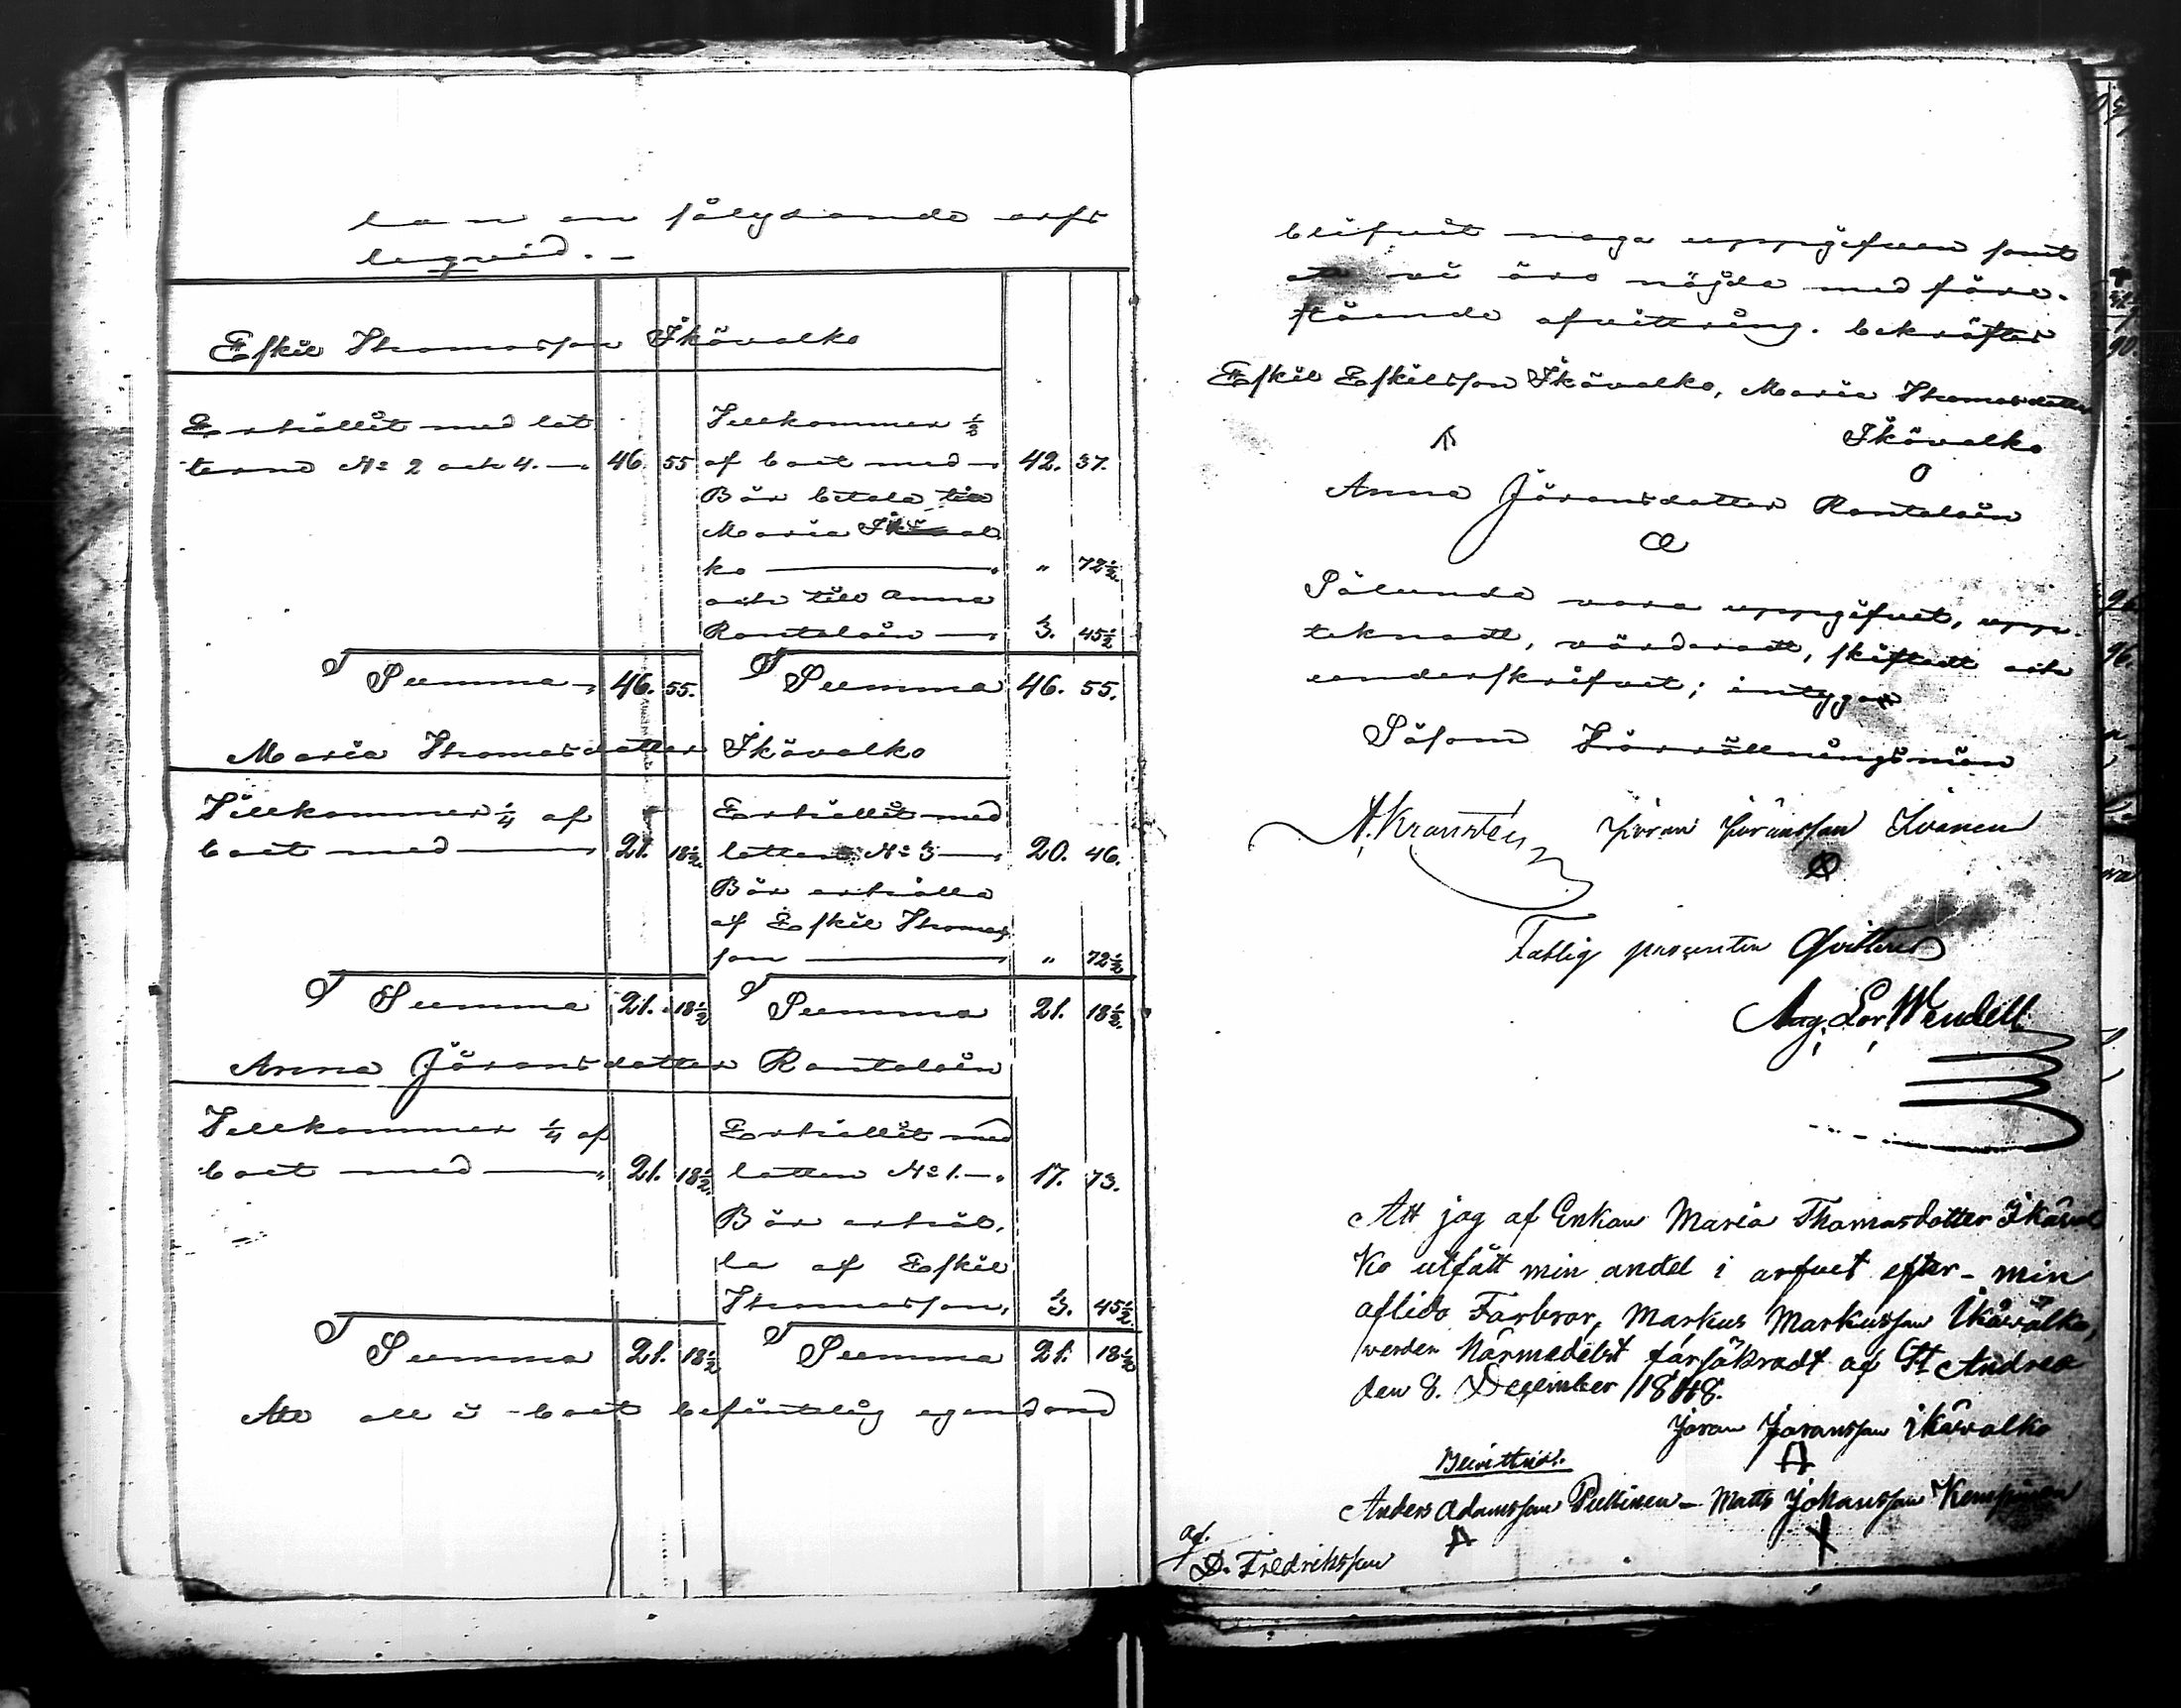 lan en följdande arfs
liqvid. —
Eskil Thomasson Ikävalko
Erhållit med lot
terne N:o 2 och 4. — 46. 55
Tillkommer ½
af boet med — 42. 37.
Bör betala till
Maria Ikäval
ko — " 72½.
och till Anna
Rantalain — 3. 45½
Summa — 46. 55.
Summa 46. 55.
Maria Thomasdotter Ikävalko
Tillkommer ¼ af
boet med — 21. 18½.
Erhållit med
lotten N:o 3 — 20. 46.
Bör erhålla
af Eskil Thomas
son — " 72½
Summa 21. 18½
Summa 21. 18½.
Anna Jöransdotter Rantalain
Tillkommer ¼ af
boet med — 21. 18½.
Erhållit med
lotten N:o 1. — 17. 73.
Bör erhål
la af Eskil
Thomasson, 3. 45½.
Summa 21. 18½
Summa 21. 18½
Att all i boet befintlig egendom
blifvit noga uppgifven samt
att vi äro nöjda med före-
stående afvittring. bekräftas
Eskil Eskilsson Ikävalko, Maria Thomasdotter
Ikävalko
Anna Jöransdotter Rantalain
Sålunda vara uppgifvet, upp-
teknadt, värderadt, skiftadt och
underskrifvet; intygar
Såsom Förrättningsmän
A. Kransten Jöran Jöransson Loanen
Fattig procenten Qvitteras
Aug. Lor. Wendell
Att jag af Enkan Maria Thomasdotter Ikäval
ko utfått min andel i arfvet efter min
aflido Farbror, Markus Markusson Ikävalko,
warder härmedelst försäkradt af St Andrea
den 8. December 1848.
Jöran Jöransson Ikävalko
Bevittna:
Anders Adamsson Pullinen — Matts Johansson Kemppinen
af.
D. Fredriksson